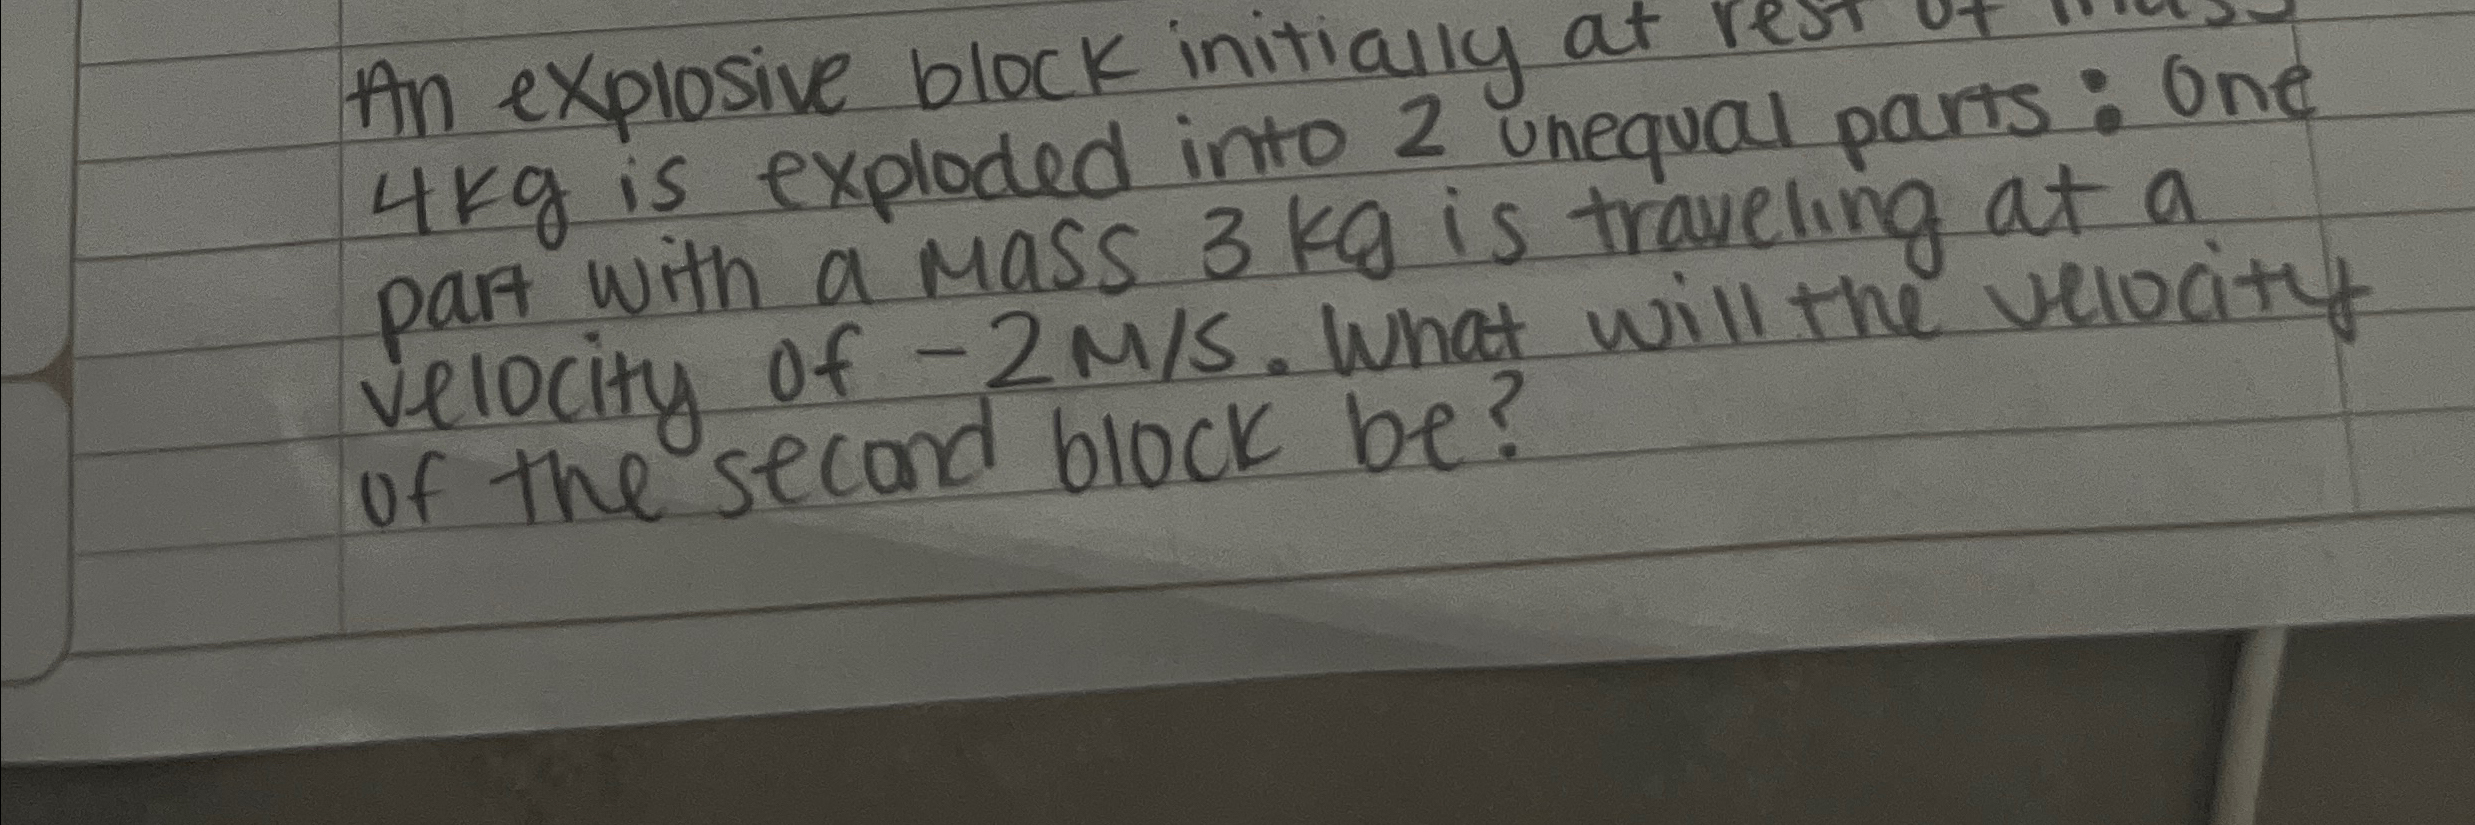 An explosive block initially at rest of mass
4kg is exploded into 2 unequal parts: One
part with a mass 3 kg is traveling at a
velocity of -2 M/S. What will the velocity
of the second block be?